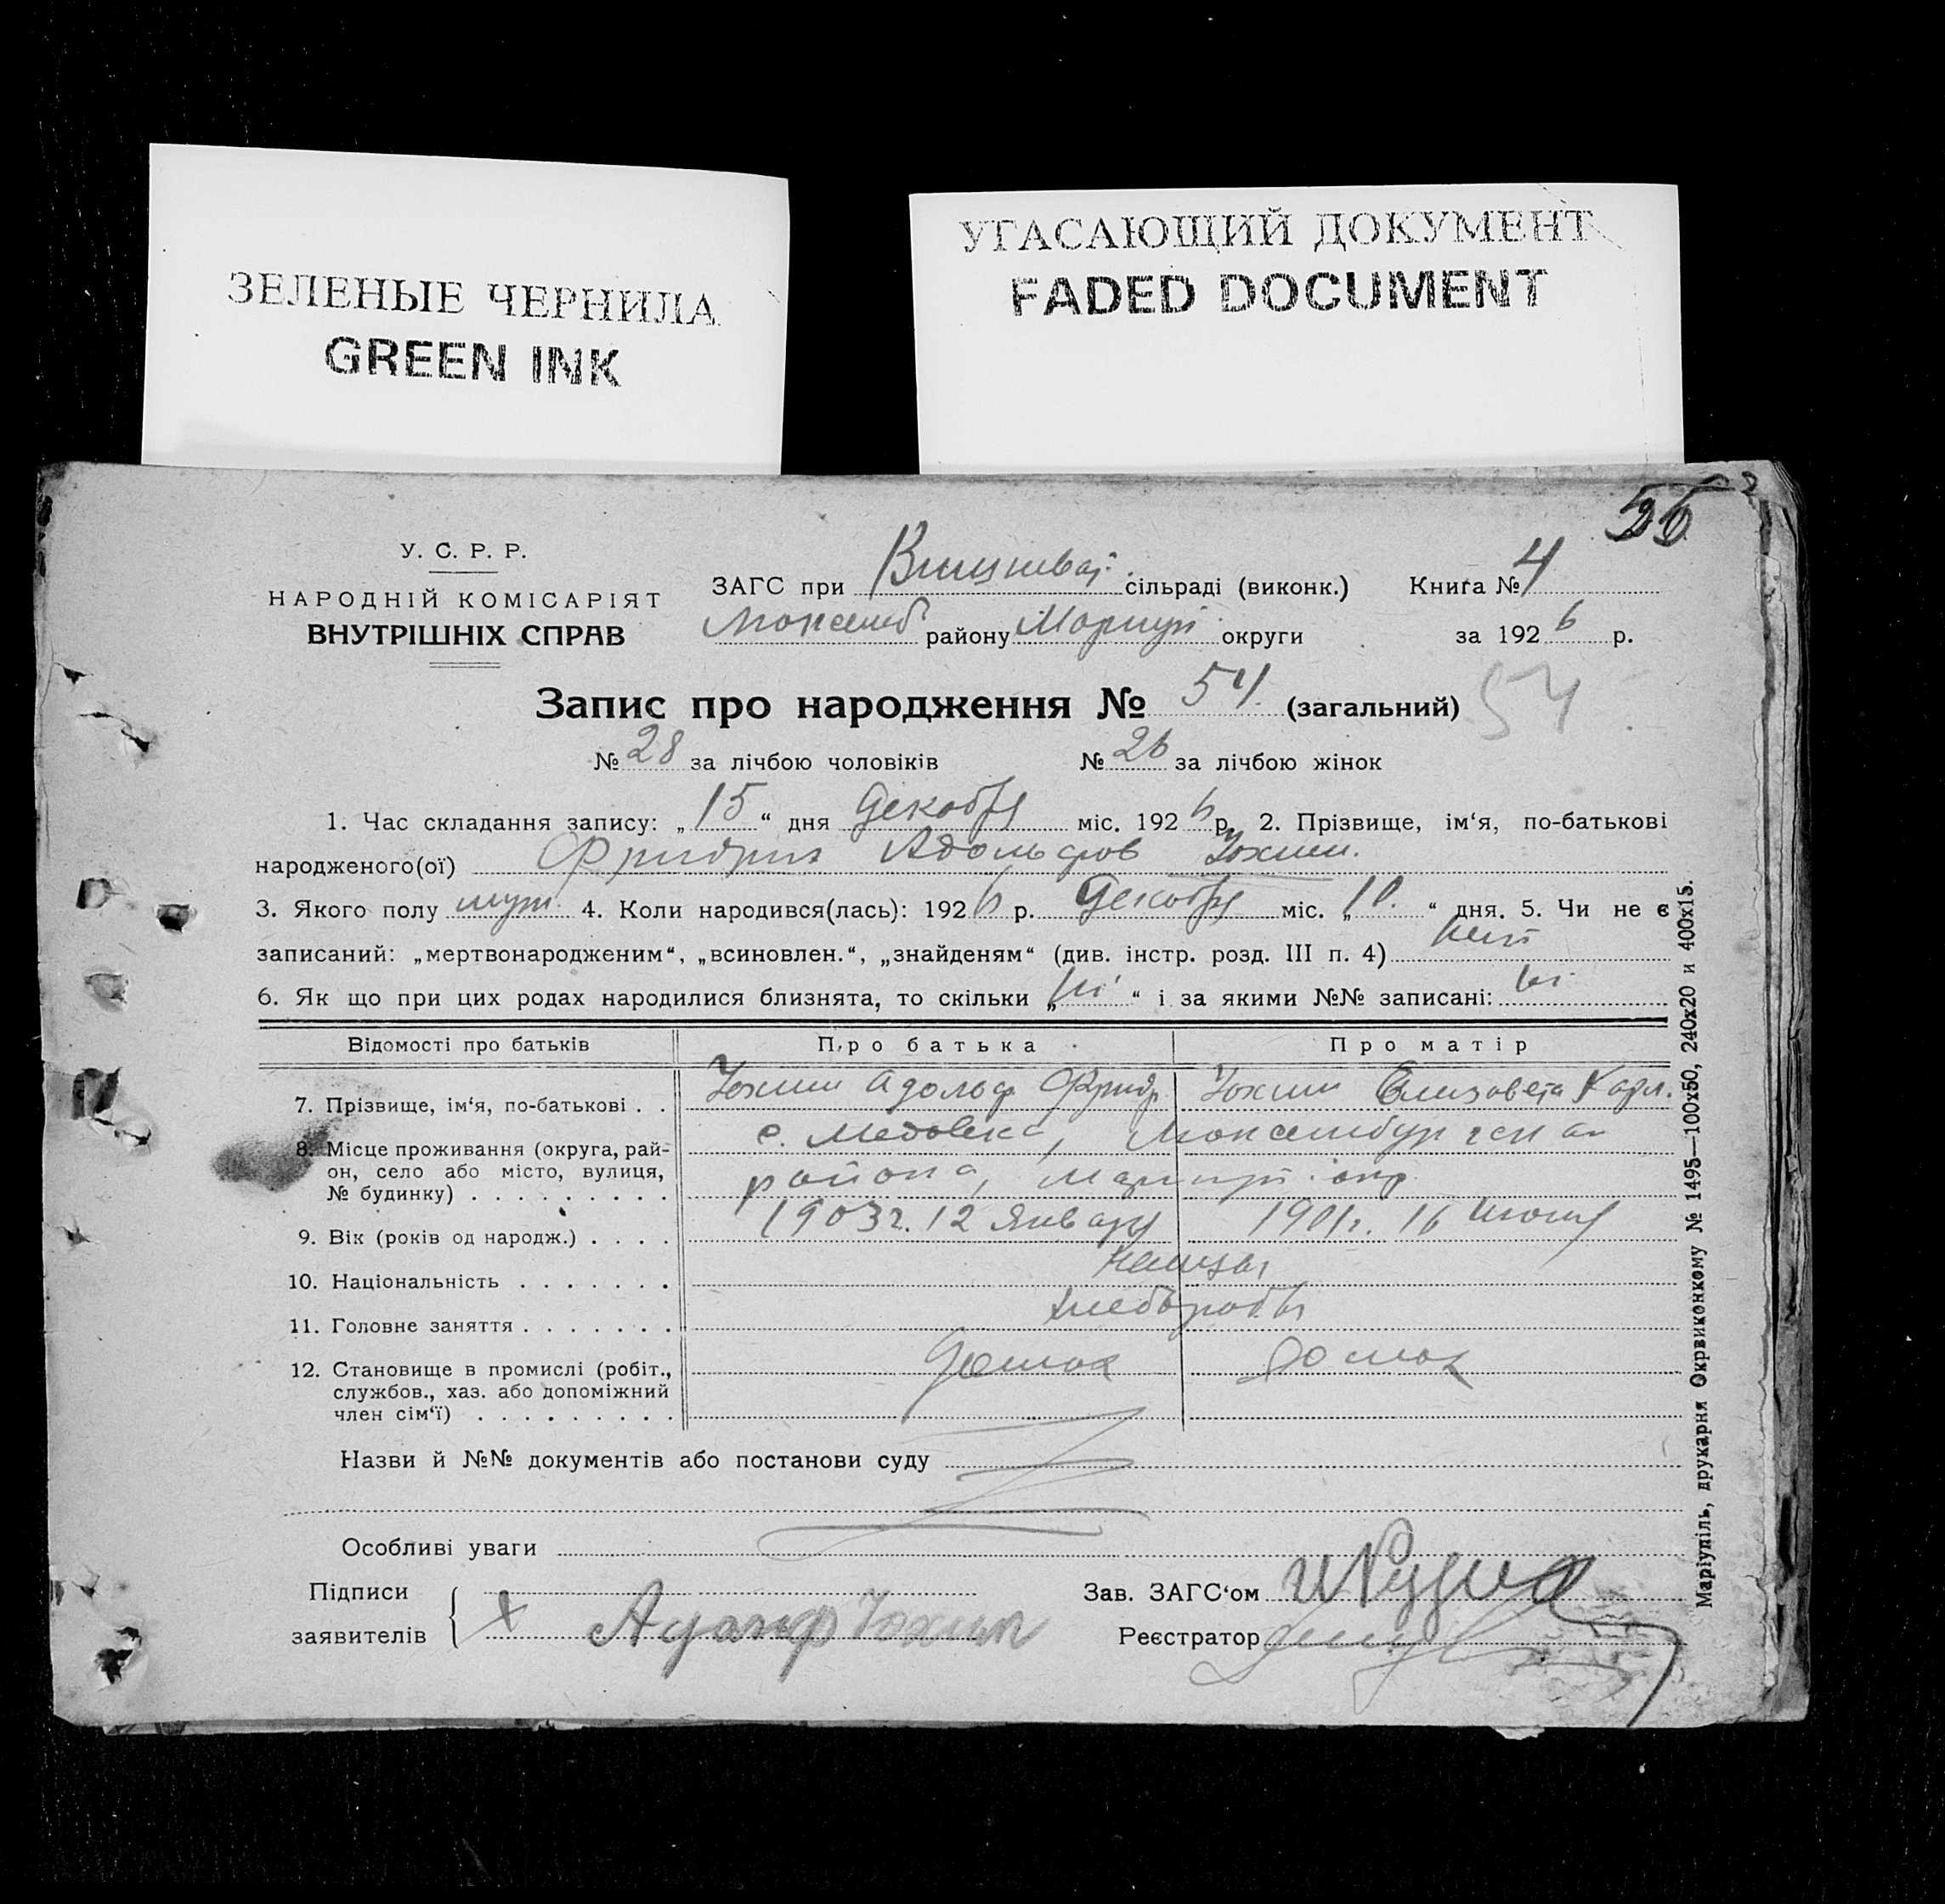 ЗЕЛЕНЫЕ ЧЕРНИЛА
GREEN INK
УГАСАЮЩИЙ ДОКУМЕНТ
FADED DOCUMENT
У. С. Р. Р.
НАРОДНІЙ КОМІСАРІЯТ
ВНУТРІШНІХ СПРАВ
ЗАГС при сільраді (виконк.) Книга № 4
району Мариуп. округи за 1926 р.
Запис про народження № 54 (загальний) 54
№ 28 за лічбою чоловіків № 26 за лічбою жінок
1. Час складання запису: „15“ дня Декабря міс. 1926 р. 2. Прізвище, ім‘я, по-батькові
народженого(ої) Фридрих Адольфов Йохим.
3. Якого полу муж. 4. Коли народився(лась): 1926 р. Декабря міс. „10.“ дня. 5. Чи не є
записаний: „мертвонародженим“, „всиновлен.“, „знайденям“ (див. інстр. розд. III п. 4)
6. Як що при цих родах народилися близнята, то скільки „ні“ і за якими №№ записані: ні
Відомості про батьків Про батька Про матір
7. Прізвище, ім‘я, по-батькові . . Йохим Адольф Фридр. Йохим Елизавета Карл.
8. Місце проживання (округа, рай-
он, село або місто, вулиця,
№ будинку) . . . . . . . . .
района, Мариуп. окр.
9. Вік (років од народж.) . . . . 1903 г. 12 Января 1901 г. 16
10. Національність . . . . . . . Немцы
11. Головне заняття . . . . . . . хлебороб.
12. Становище в промислі (робіт.,
службов., хаз. або допоміжний
член сім‘ї) . . . . . . . . .
Назви й №№ документів або постанови суду
Особливі уваги
Підписи
заявителів Адольф Йохим
Зав. ЗАГС‘ом
Реєстратор
Маріупіль, друкарня Окрвиконкому № 1495—100х50, 240х20 и 400х15.